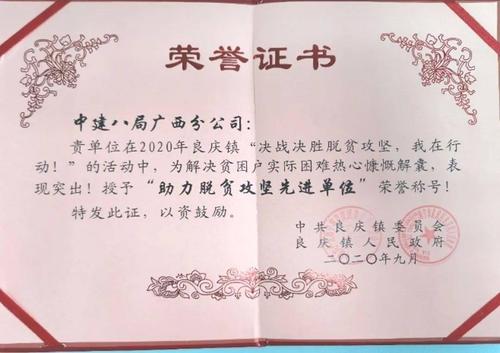 荣誉证书
中建八局广西分公司：
贵单位在2020年良庆镇“决战决胜脱贫攻坚，我在行
动！”的活动中，为解决贫困户实际困难热心慷慨解囊，表
现突出！授予“助力脱贫攻坚先进单位”荣誉称号！
特发此证，以资鼓励。
中共良庆镇委员会
良庆镇人民政府
二〇二〇年九月